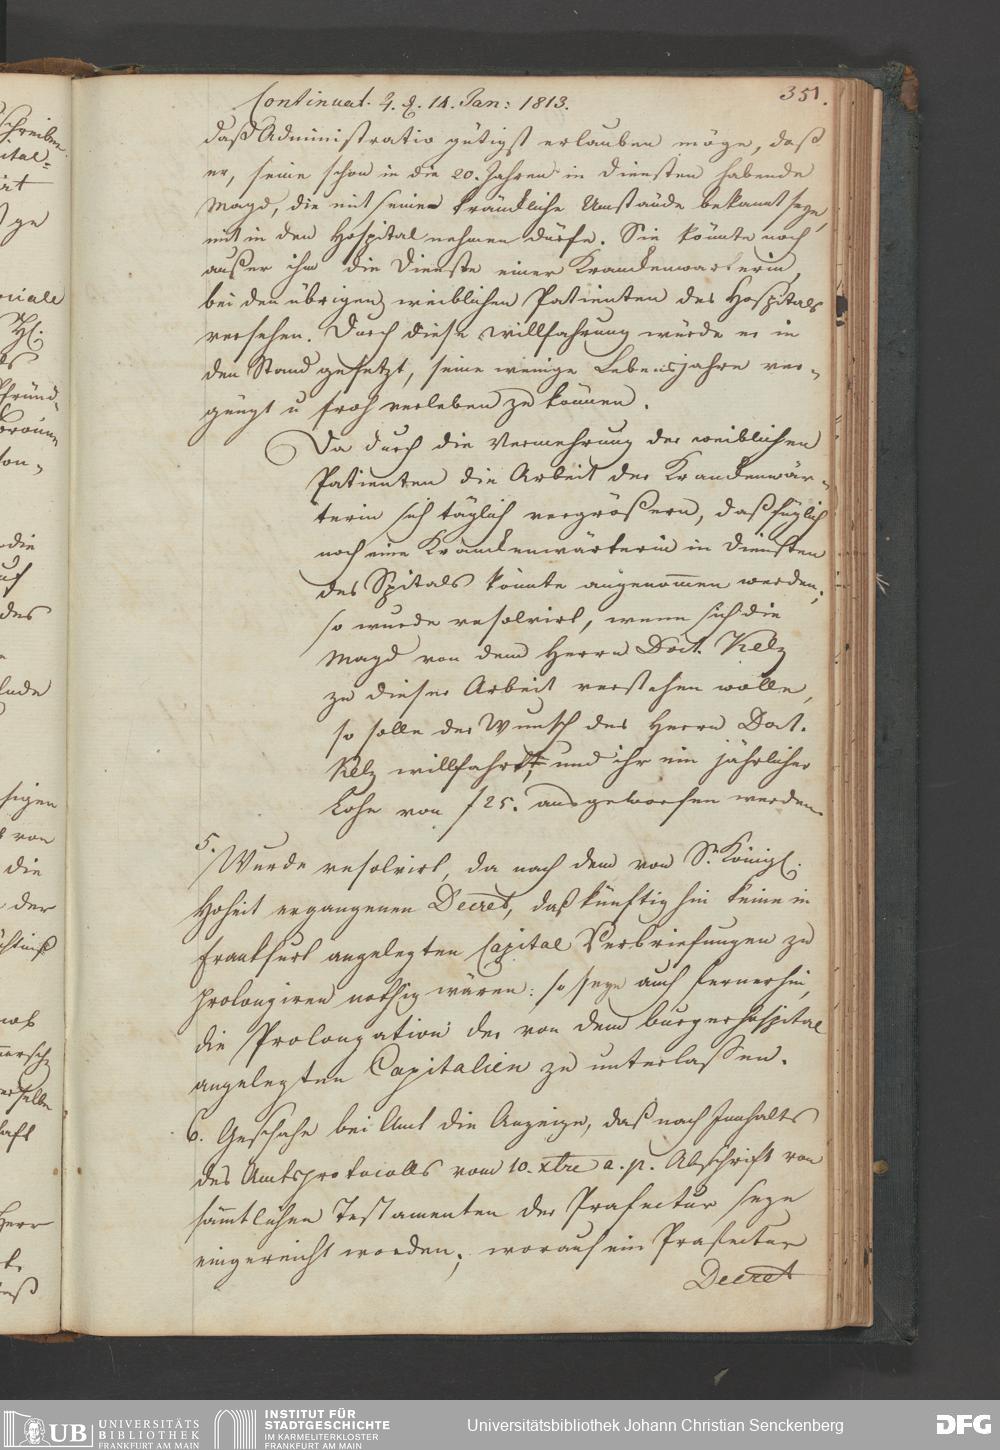 Continuat. 4. d. 14. Jan: 1813.
351.
daß Administratio gütigst erlauben möge, daß
er, seine schon in die 20. Jahren in Diensten habende
Magd, die mit seine kränkliche Umstände bekannt seye,
mit in den Hospital nehmen dürfe. Sie könnte noch
außer ihm die Dienste einer Krankenwarterin,
bei den übrigen weiblichen Patienten des Hospitals
versehen. Durch diese willfahrung würde er in
den Stand gesetzt, seine wenige Lebensjahre ver-
gnügt u froh verleben zu können.
Da durch die Vermehrung der weiblichen
Patienten die Arbeit der Krankenwär-
terin sich täglich vergrößern, daß füglich
noch eine Krankenwärterin in Diensten
des Spitals könnte angenom̄en werden;
so wurde resolvirt, wenn sich die
Magd von dem Herrn Doct. Kelz
zu dieser Arbeit verstehen wolle,
so solle der Wunsch des Herrn Doct.
Kelz willfahrt, und ihr ein jährlicher
Lohn von f 25. ausgeworfen werden.
5. Wurde resolvirt, da nach dem von Sr. Königl.
Hoheit ergangenen Decret, daß künftighin keine in
Frankfurt angelegten Capital Verbriefungen zu
prolongiren nöthig wären: so seye auch fernerhin,
die Prolongation der von dem burgerhospital
angelegten Capitalien zu unterlassen.
6. Geschahe bei Amt die Anzeige, daß nach Innhalts
des Amtsprotocolls vom 10. xbre a. p. Abschrift von
säm̄tlichen Testamenten der Präfectur seye
eingereicht worden; worauf ein Präfectur
Decret
UB
UNIVERSITÄTS
BIBLIOTHEK
FRANKFURT AM MAIN
INSTITUT FÜR
STADTGESCHICHTE
IM KARMELITERKLOSTER
FRANKFURT AM MAIN
Universitätsbibliothek Johann Christian Senckenberg
DFG